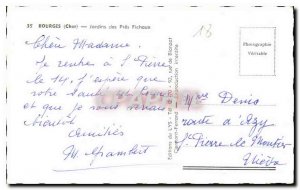 35 BOURGES (Cher) — Jardins des Prés Fichaux
18
Photographie
Véritable
Chère Madame.
Je rentre à St Pierre
le 14. J'espère que
votre santé est bonne
et que je vous
bientôt
Amitiés
Mme Denis
route d'Azy
St Pierre le Moutier
Nièvre
Editions du LYS